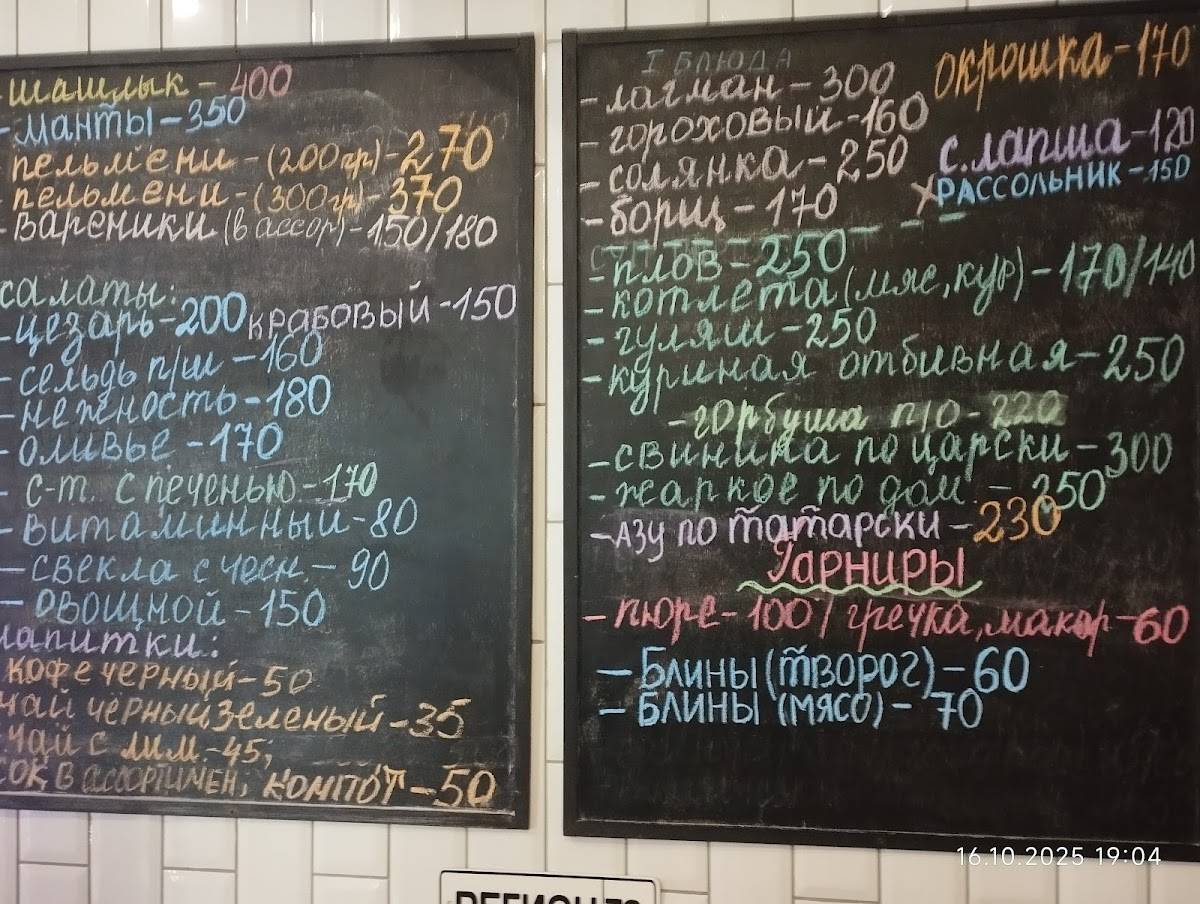 - шашлык - 400
- манты - 350
пельмени - (200гр) - 270
пельмени - (300гр) - 370
- вареники (в ассор) - 150/180
салаты:
- цезарь - 200 крабовый - 150
- сельдь п/ш - 160
- нежность - 180
- оливье - 170
- с-т. с печенью - 170
- витаминный - 80
- свекла с чесн. - 90
- овощной - 150
напитки:
кофе черный - 50
чай чёрный зеленый - 35
чай с лим. - 45;
сок в ассортимен, компот - 50
I блюда
- лагман - 300
- гороховый - 160
- солянка - 250
- борщ - 170
окрошка - 170
с. лапша - 120
рассольник - 150
- плов - 250
- котлета (мяс, кур) - 170/140
- гуляш - 250
- куриная отбивная - 250
- горбуша п/о - 220
- свинина по царски - 300
- жаркое по дом. - 250
- азу по татарски - 230
Гарниры
- пюре - 100 / гречка, макар - 60
- Блины (творог) - 60
- Блины (мясо) - 70
16.10.2025 19:04